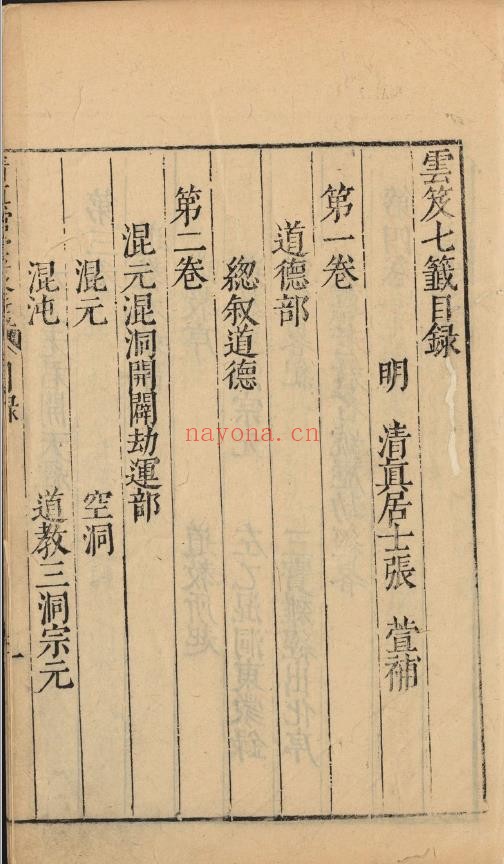 雲笈七籤目録
明 清真居士張 萱補
第一卷
道德部
總叙道德
第二卷
混元混洞開闢劫運部
混元 空洞
混沌 道教三洞宗元
nayona.cn